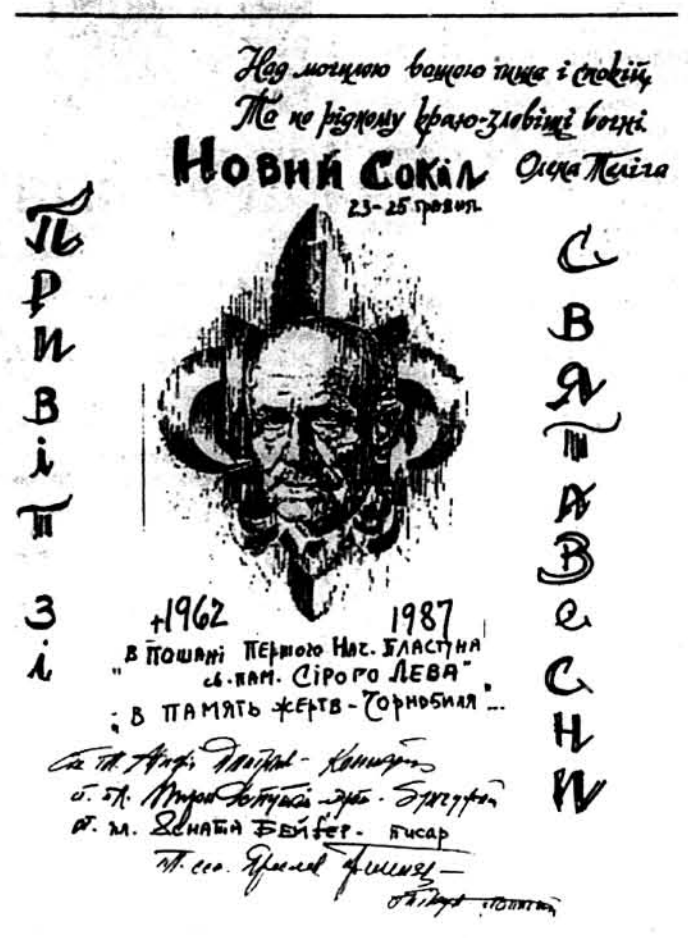 Над могилою вашою тиша і спокій,
Та по рідному краю-зловіщі вогні.
Олена Теліга
Новий Сокіл
23-25 травня
ПРИВіТ Зі
СВЯТА ВеСНИ
+1962 1987
"В пошані Першого Нач. Пластуна
св. пам. Сірого Лева"
"В память жертв-Чорнобиля"...
ст. пл.
ст. пл.
ст. пл. Бейгер - писар
Пл. сен. Ярослав